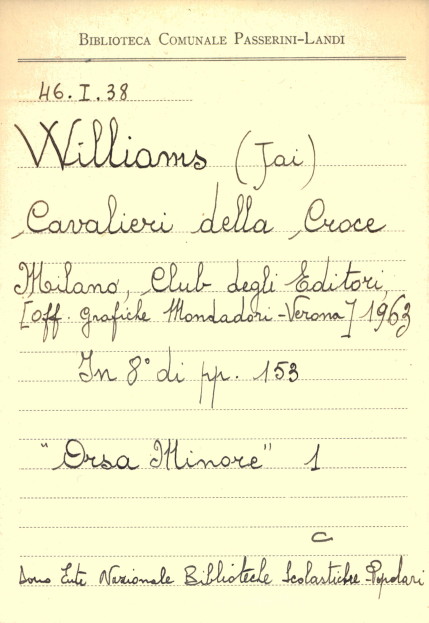 BIBLIOTECA COMUNALE PASSERINI-LANDI
46.I.38
Williams (Jai)
Cavalieri della Croce
Milano, Club degli Editori,
[off. Grafiche Mondadori-Verona] 1963
In 8° di pp. 153
"Orsa Minore" 1
C
Dono Ente Nazionale Biblioteche Scolastiche-Popolari